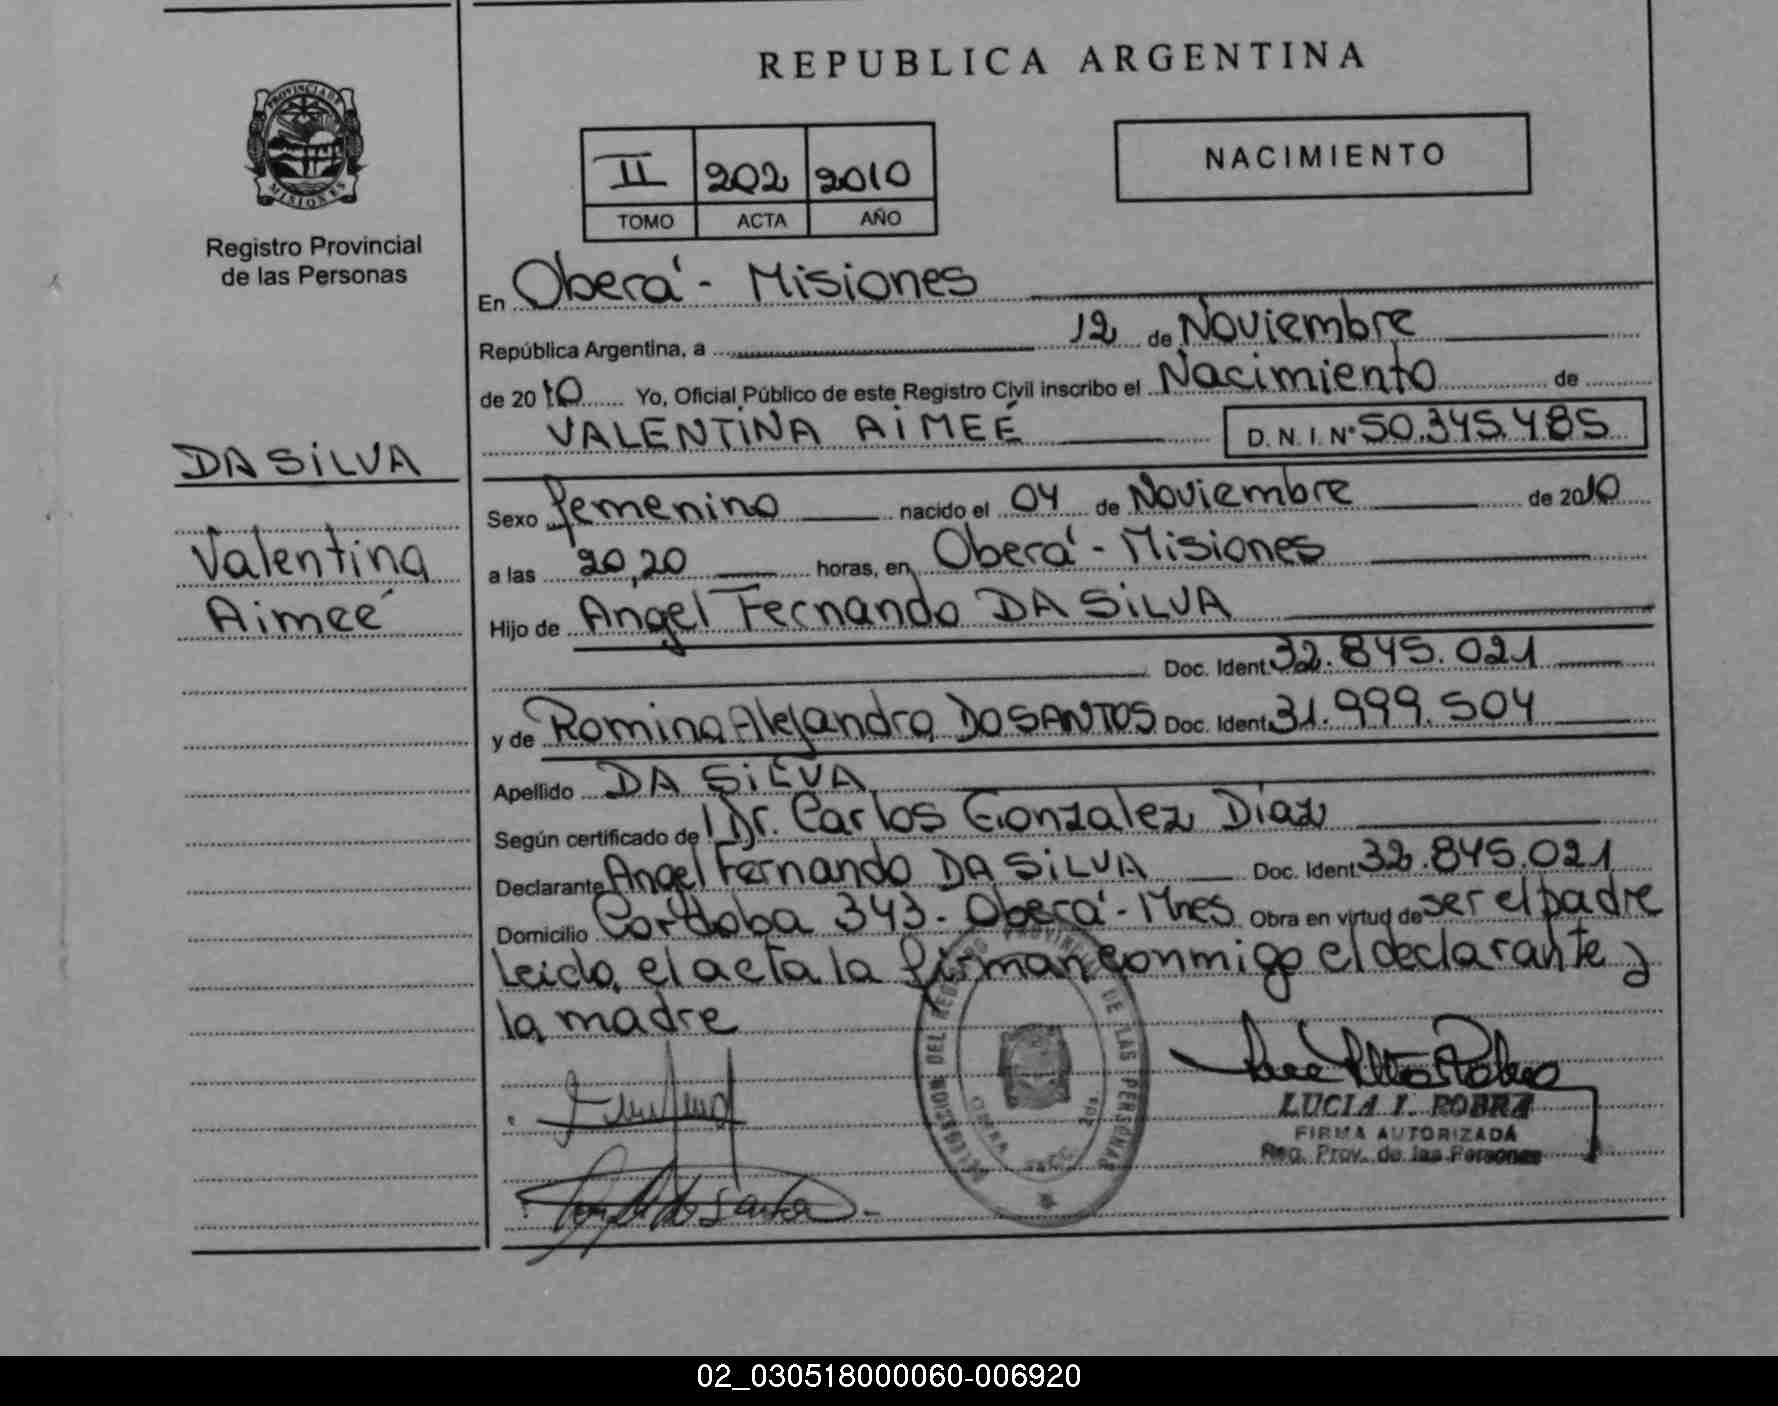 REPUBLICA ARGENTINA
PROVINCIA DE
MISIONES
Registro Provincial
de las Personas
II 202 2010
TOMO ACTA AÑO
NACIMIENTO
En Oberá - Misiones
República Argentina, a 12 de Noviembre
de 2010 Yo, Oficial Público de este Registro Civil inscribo el Nacimiento de
VALENTINA AIMEÉ D.N.I. Nº 50.345.485
DA SILVA
Valentina
Aimeé
Sexo femenino nacido el 04 de Noviembre de 2010
a las 20,20 horas, en Oberá - Misiones
Hijo de Angel Fernando DA SILVA
Doc. Ident. 32.845.021
y de Romina Alejandra DO SANTOS Doc. Ident. 31.999.504
Apellido DA SILVA
Según certificado de Dr. Carlos Gonzalez Diaz
Declarante Angel Fernando DA SILVA Doc. Ident. 32.845.021
Domicilio Cordoba 343 - Oberá - Mnes Obra en virtud de ser el padre
Leido, el acta la firman conmigo el declarante y
la madre
DELEGACION DEL REGISTRO PROVINCIAL DE LAS PERSONAS
OBERA
LUCIA I. ROBRA
FIRMA AUTORIZADA
Reg. Prov. de las Personas
02_030518000060-006920